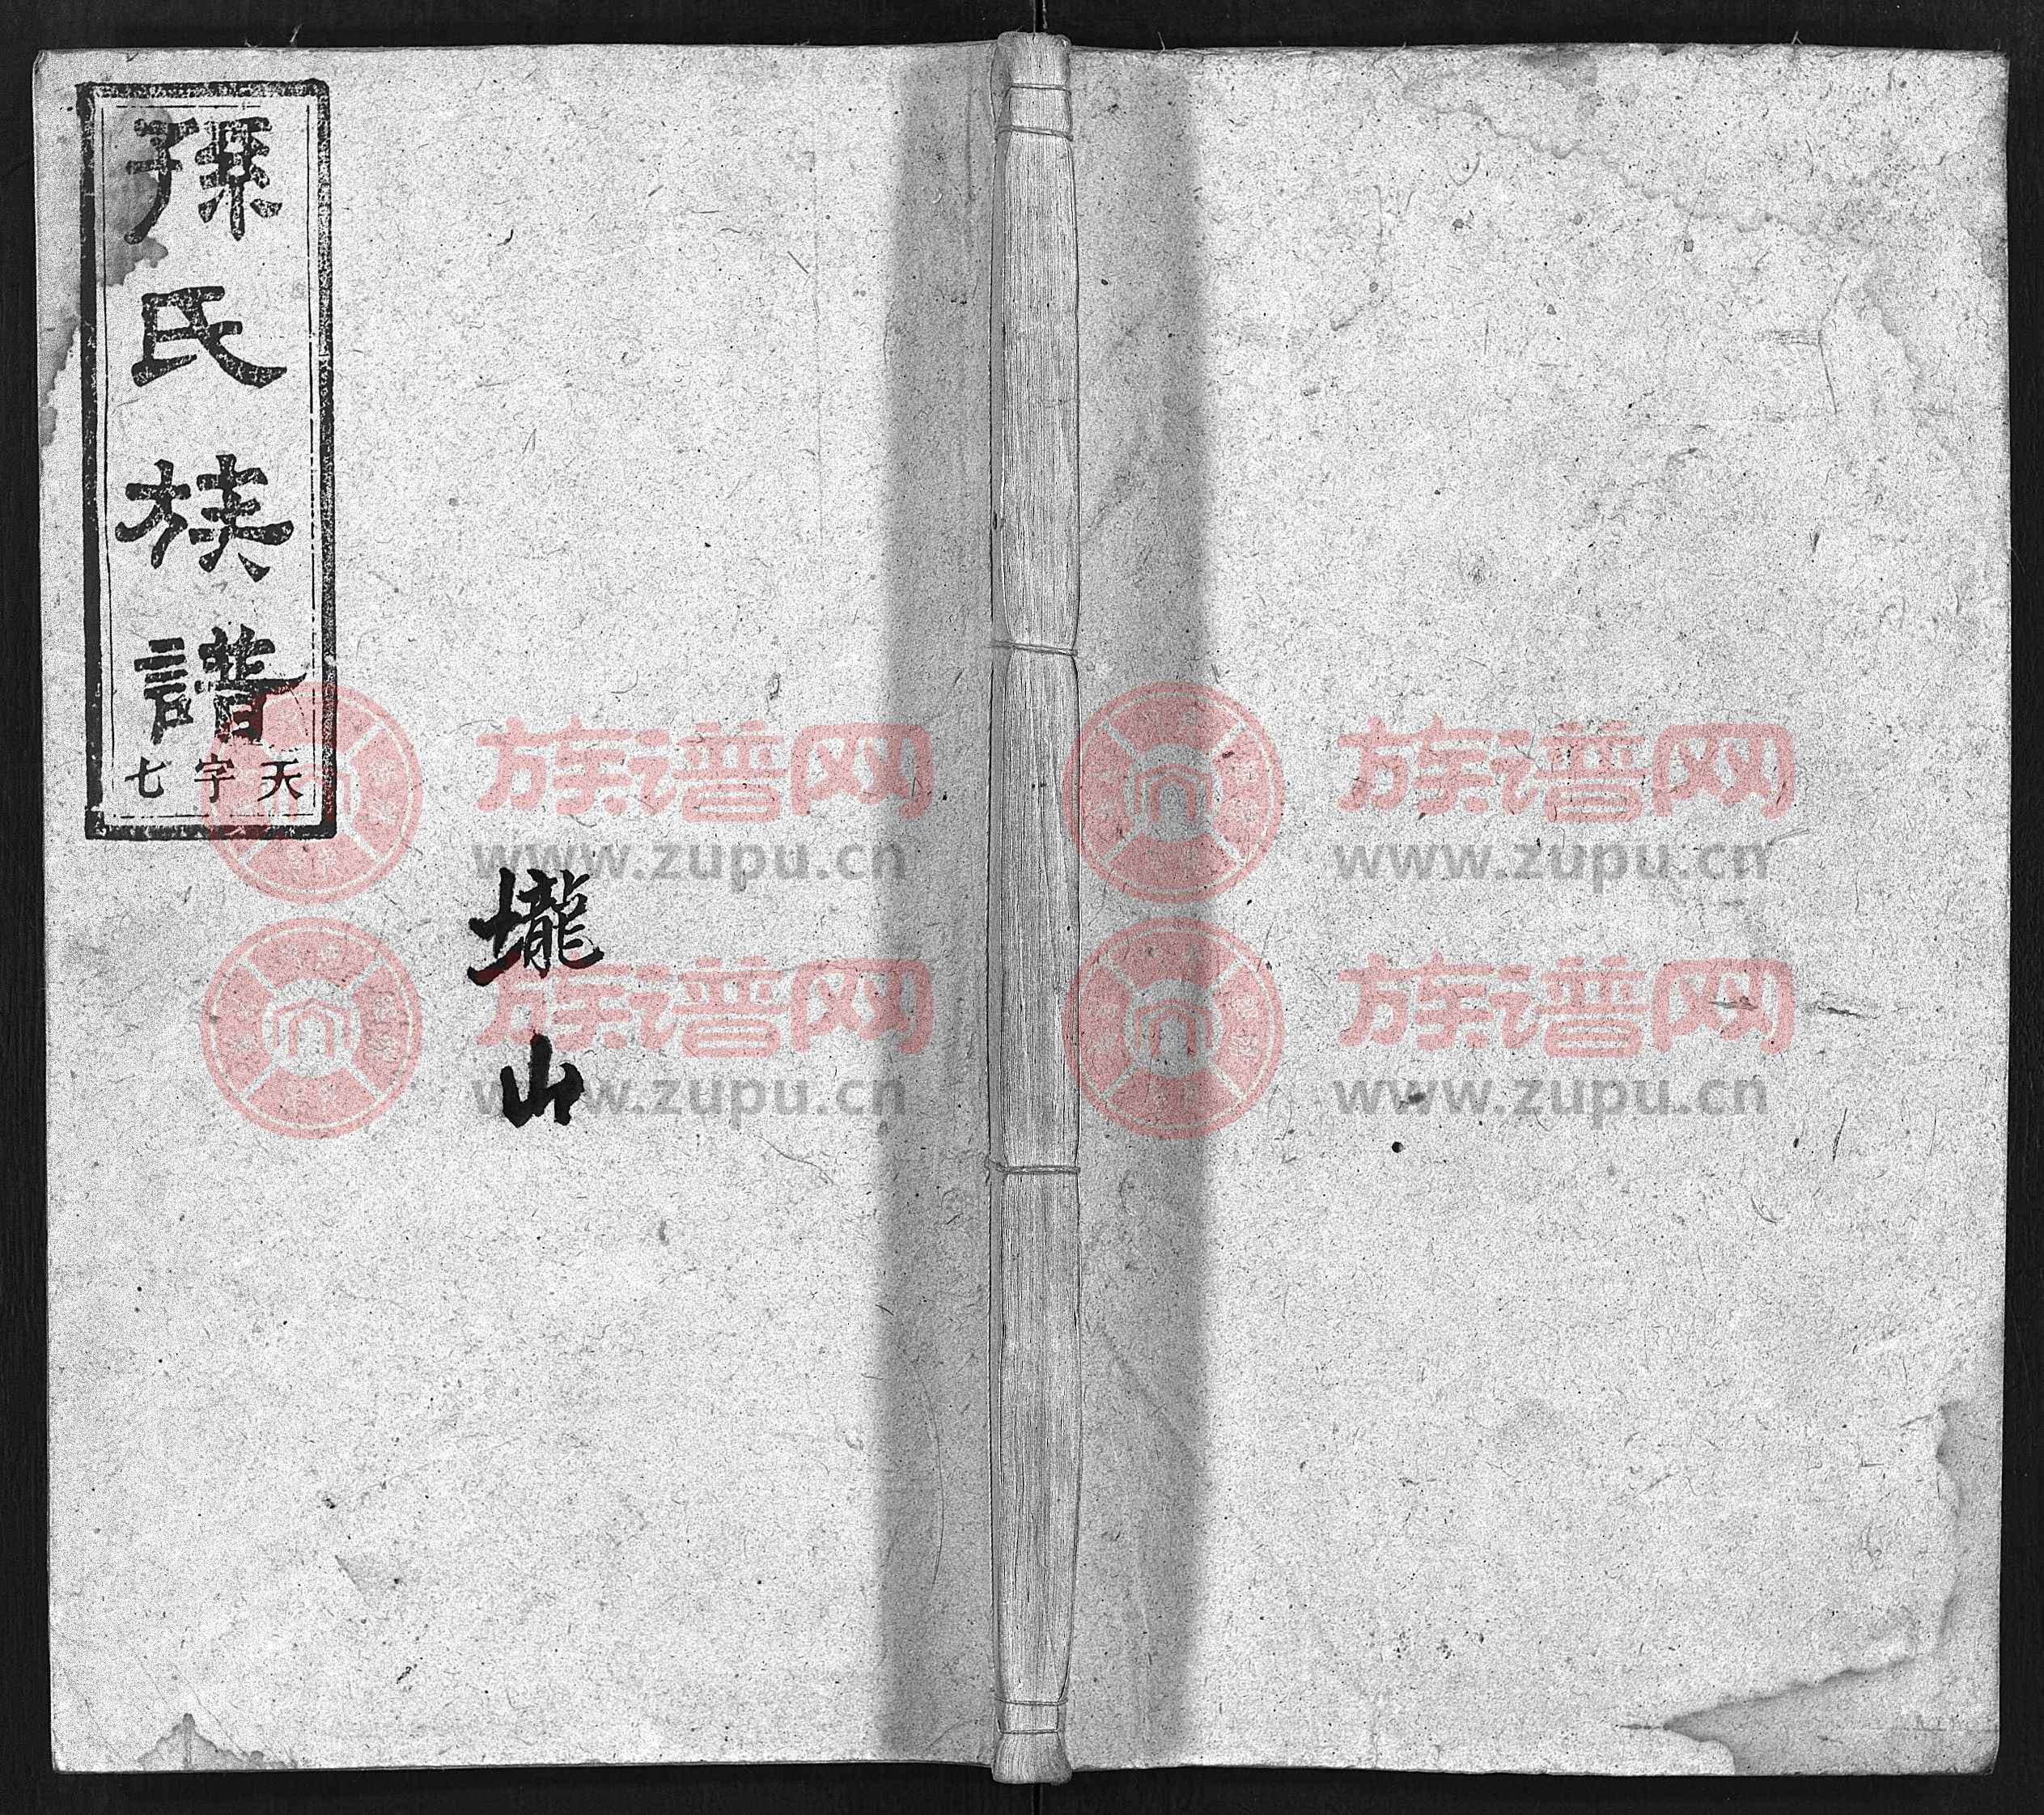 孫氏族譜
天字七
壠山
族谱网
www.zupu.cn
族谱网
www.zupu.cn
族谱网
www.zupu.cn
族谱网
www.zupu.cn